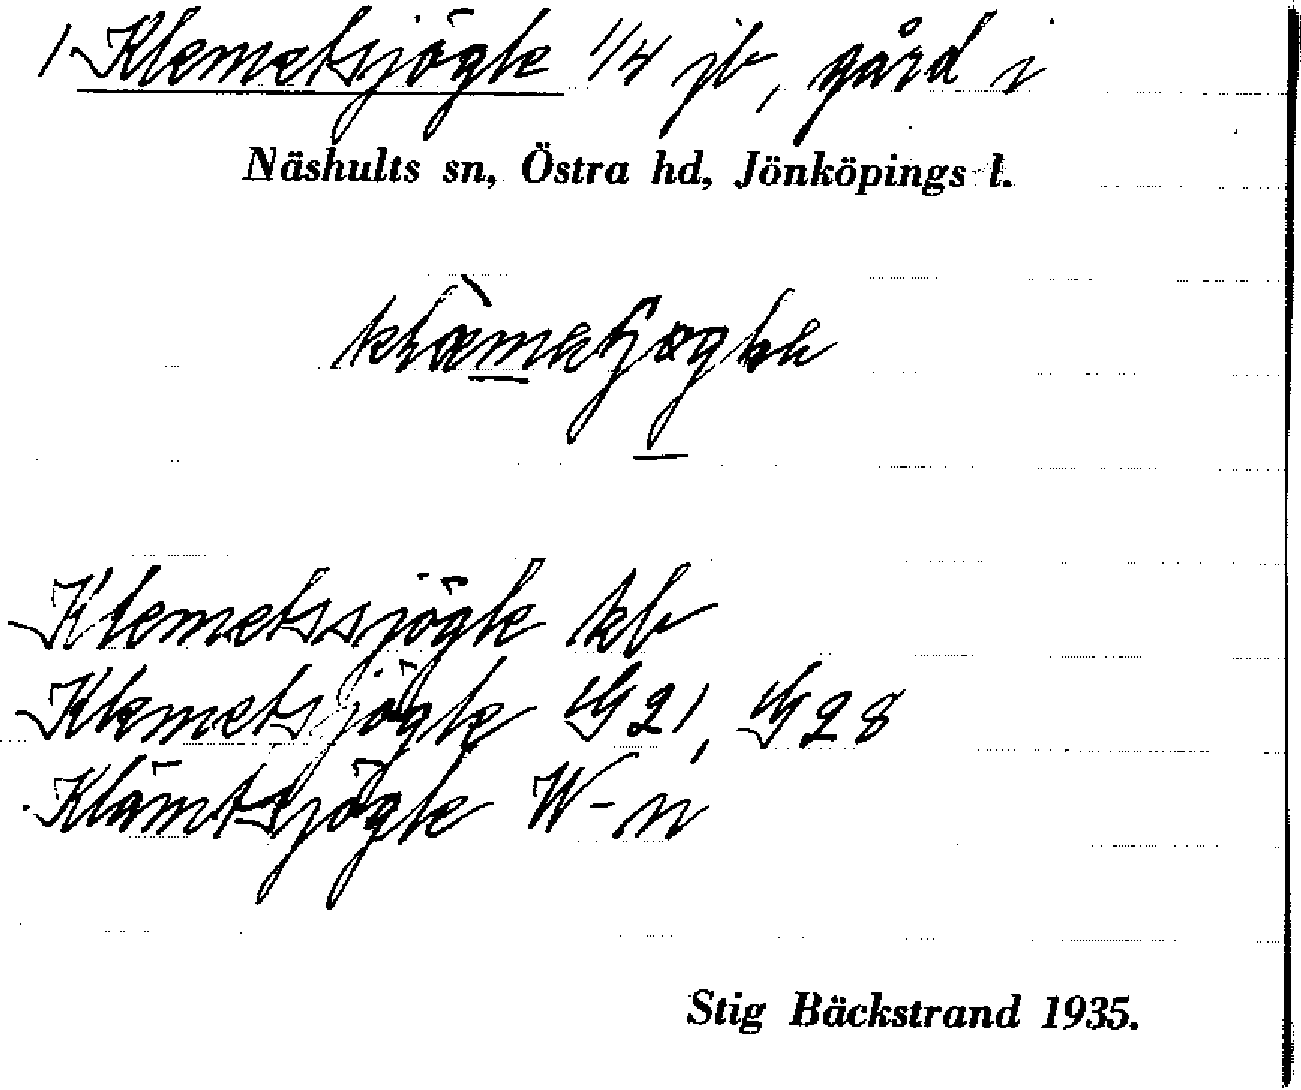 1 Klemetsjögle 1/4 jb, gård i
Näshults sn, Östra hd, Jönköpings l.
Klemetssjögle kb
Klemetsjögle 21, 28
Klämtsjögle W-n
Stig Bäckstrand 1935.